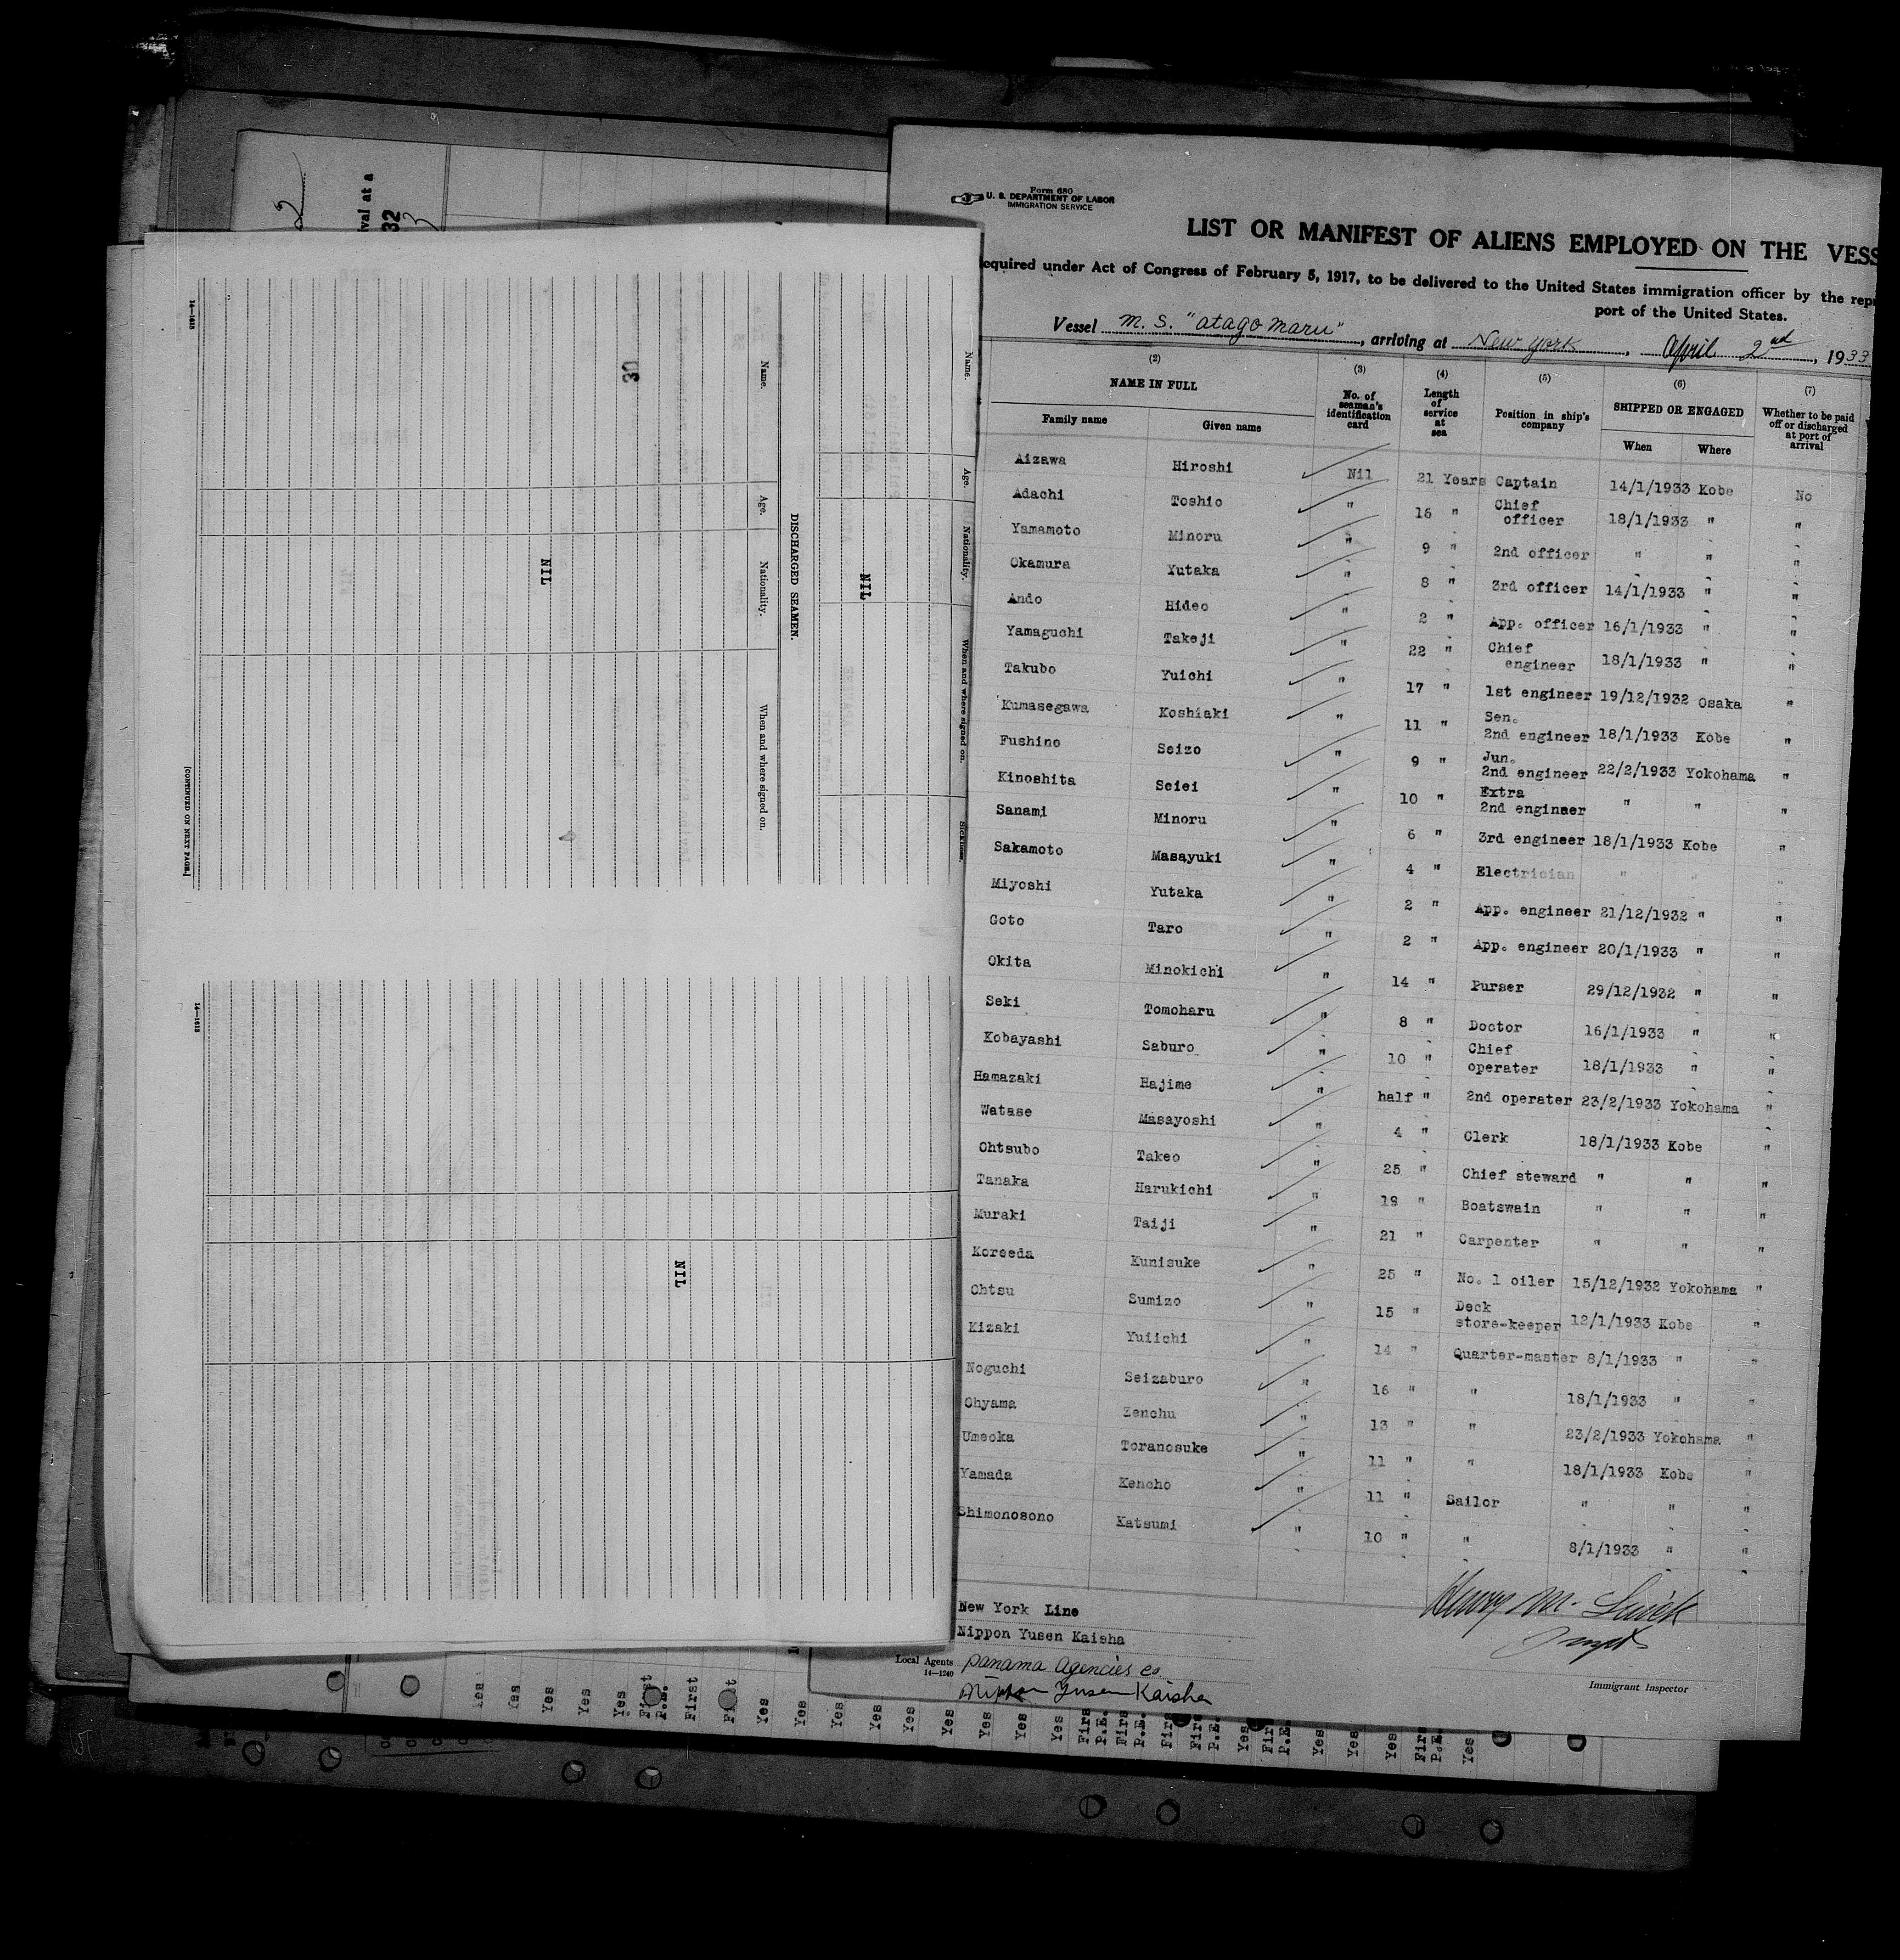 Form 680
U. S. DEPARTMENT OF LABOR
IMMIGRATION SERVICE
LIST OR MANIFEST OF ALIENS EMPLOYED ON THE VESS
equired under Act of Congress of February 5, 1917, to be delivered to the United States immigration officer by the repr
port of the United States.
Vessel M. S. "Atago Maru", arriving at New York, April 2nd, 1933
(2) (3) (4) (5) (6) (7)
NAME IN FULL No. of seaman's identification card Length of service at sea Position in ship's company SHIPPED OR ENGAGED Whether to be paid off or discharged at port of arrival
Family name Given name When Where
Aizawa Hiroshi Nil 21 Years Captain 14/1/1933 Kobe No
Adachi Toshio " 16 " Chief officer 18/1/1933 " "
Yamamoto Minoru " 9 " 2nd officer " " "
Okamura Yutaka " 8 " 3rd officer 14/1/1933 " "
Ando Hideo " 2 " App. officer 16/1/1933 " "
Yamaguchi Takeji " 22 " Chief engineer 18/1/1933 " "
Takubo Yuichi " 17 " 1st engineer 19/12/1932 Osaka "
Kumasegawa Koshiaki " 11 " Sen. 2nd engineer 18/1/1933 Kobe "
Fushino Seizo " 9 " Jun. 2nd engineer 22/2/1933 Yokohama "
Kinoshita Seiei " 10 " Extra 2nd engineer " " "
Sanami Minoru " 6 " 3rd engineer 18/1/1933 Kobe "
Sakamoto Masayuki " 4 " Electrician " " "
Miyoshi Yutaka " 2 " App. engineer 21/12/1932 " "
Goto Taro " 2 " App. engineer 20/1/1933 " "
Okita Minokichi " 14 " Purser 29/12/1932 " "
Seki Tomoharu " 8 " Doctor 16/1/1933 " "
Kobayashi Saburo " 10 " Chief operater 18/1/1933 " "
Hamazaki Hajime " half " 2nd operater 23/2/1933 Yokohama "
Watase Masayoshi " 4 " Clerk 18/1/1933 Kobe "
Ohtsubo Takeo " 25 " Chief steward " " "
Tanaka Harukichi " 19 " Boatswain " " "
Muraki Taiji " 21 " Carpenter " " "
Koreeda Kunisuke " 25 " No. 1 oiler 15/12/1932 Yokohama "
Ohtsu Sumizo " 15 " Deck store-keeper 12/1/1933 Kobe "
Kizaki Yuiichi " 14 " Quarter-master 8/1/1933 " "
Noguchi Seizaburo " 16 " " 18/1/1933 " "
Ohyama Zenchu " 13 " " 23/2/1933 Yokohama "
Umeoka Toranosuke " 11 " " 18/1/1933 Kobe "
Yamada Kencho " 11 " Sailor " " "
Shimonosono Katsumi " 10 " " 8/1/1933 " "
New York Line
Nippon Yusen Kaisha
Local Agents Panama Agencies Co.
14—1240
Nippon Yusen Kaisha
Henry M.
Immigrant Inspector
Name. Age. Nationality. When and where signed on. Sickness.
NIL
DISCHARGED SEAMEN.
Name. Age. Nationality. When and where signed on.
30
NIL
[CONTINUED ON NEXT PAGE.]
14—1613
14—1613
NIL
2
val at a
32
Yes Yes Yes Yes Yes First P.E. First First Yes Yes Yes Yes Yes Yes Yes Yes Yes Firs P.E. Firs P.E. Firs Firs P.E. Yes Firs P.E. Yes Yes Yes Firs P.E. Yes